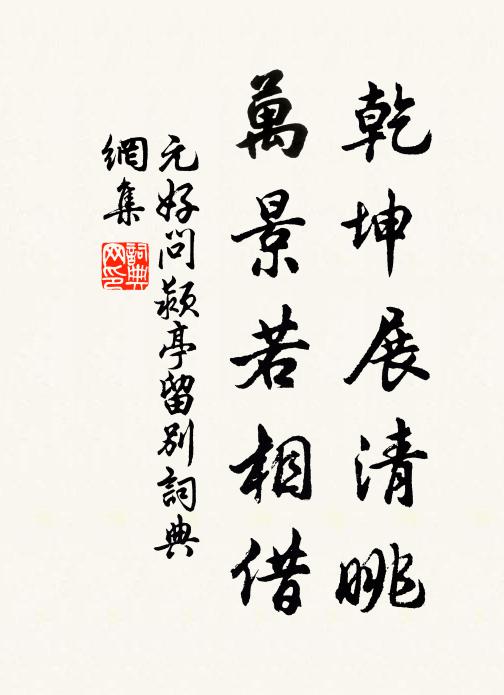 乾坤展清眺
萬景若相借
元好问颍亭留别詞典
網集
詞典
网印